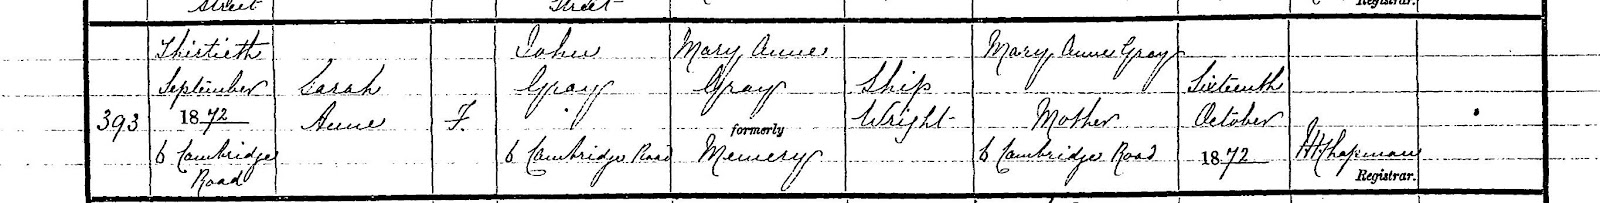 Street
Street
Registrar.
393
Thirtieth
September
1872
6 Cambridge
Road
Sarah
Anne
F.
John
Gray
6 Cambridge Road
Mary Anne
Gray
formerly
Memery
Ship
Wright
Mary Anne Gray
Mother
6 Cambridge Road
Sixteenth
October
1872
H H Chapman
Registrar.